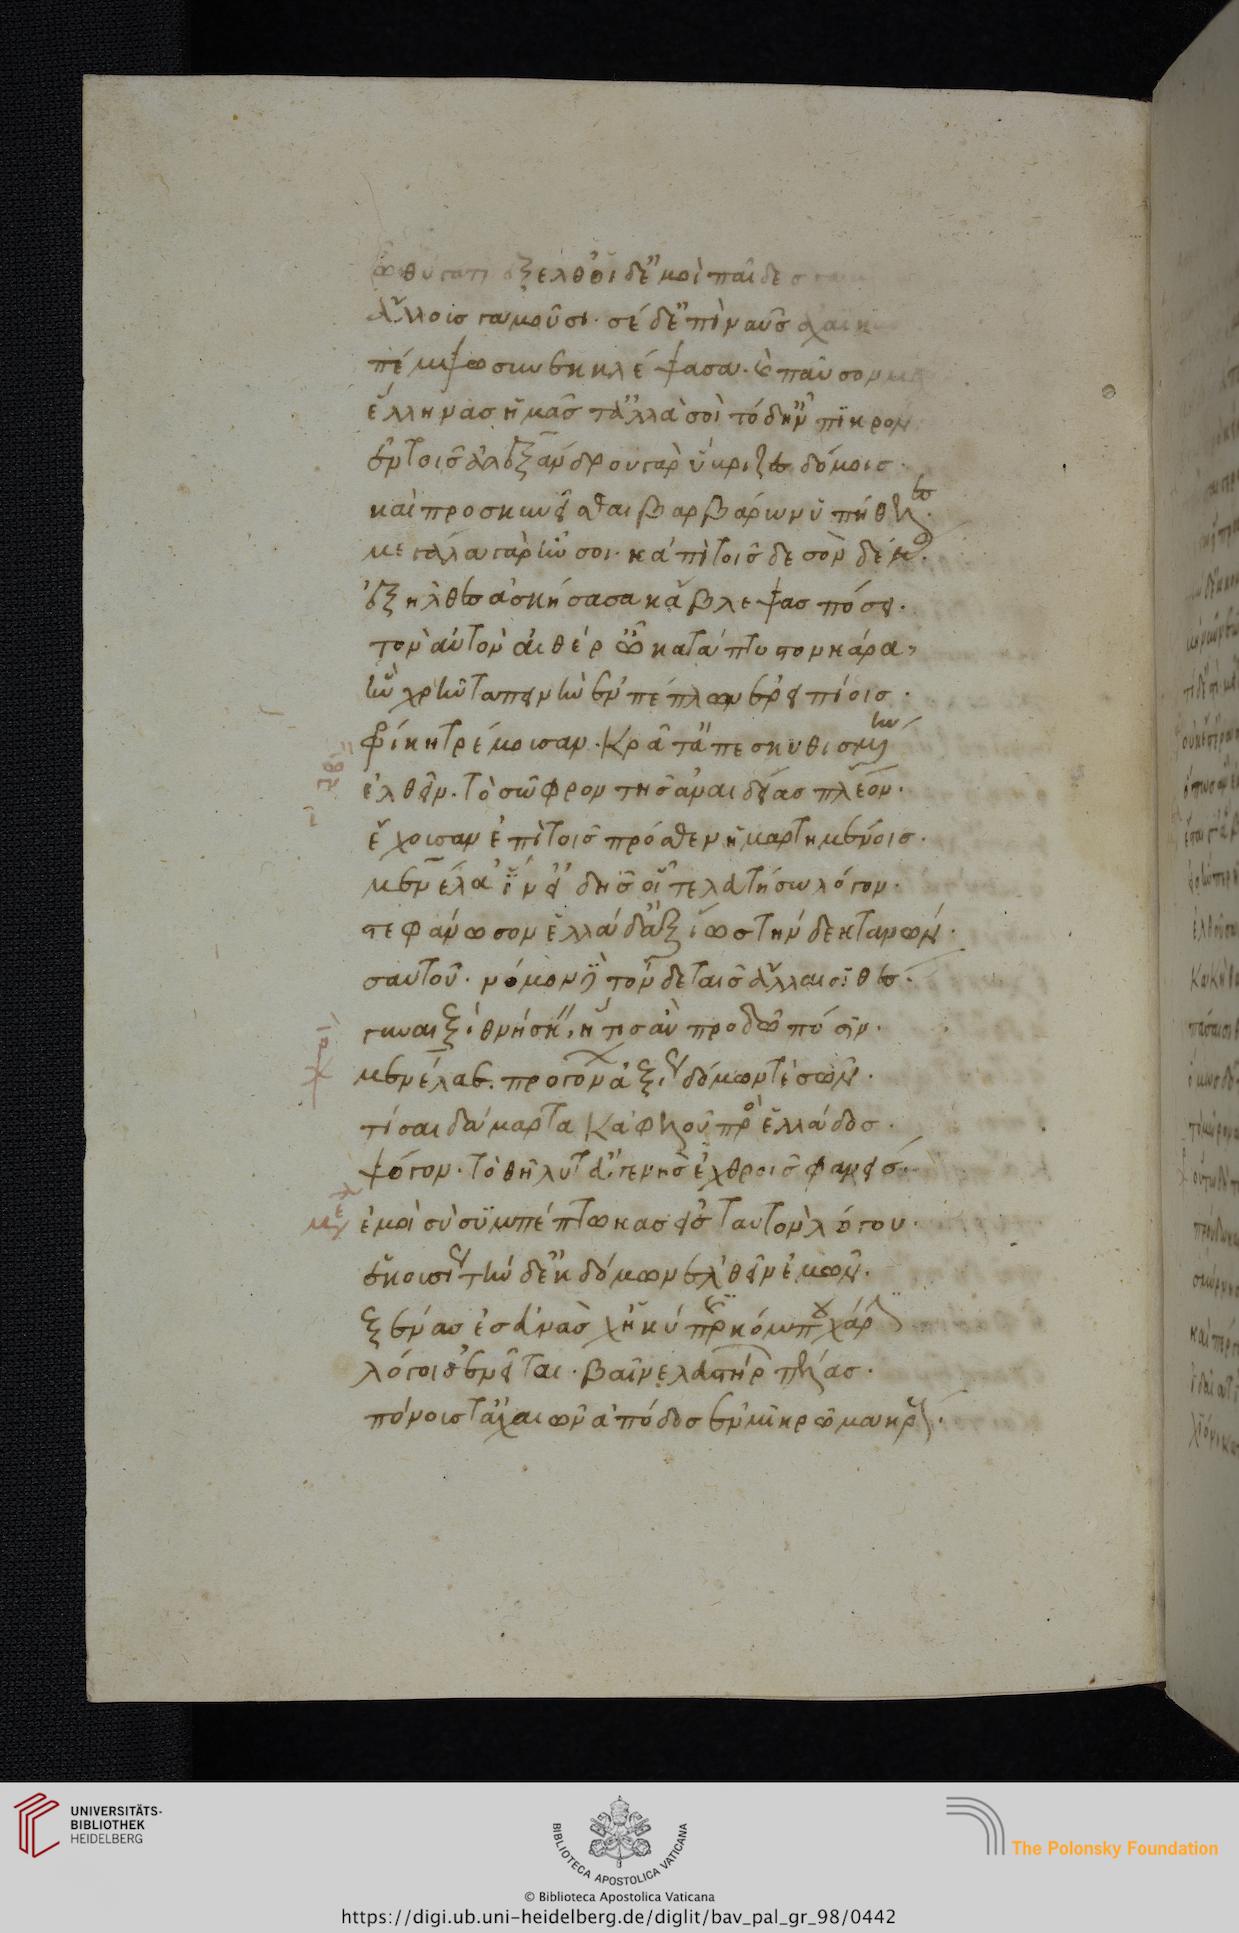 ὦ θύγατερ ἔξελθ' οἱ δ' ἐμοὶ παῖδες
ἄλλοις γαμοῦσι· σὲ δ' ἐπὶ ναῦς ἀχαιῶν
πέμψω συνεκκλέψασα· καὶ παῦσον
ἕλληνας ἡμᾶς τ'· ἀλλὰ σοὶ τόδ' ἦν πικρόν
ἐν τοῖς ἀλεξάνδρου γὰρ ὕβριζες δόμοις·
καὶ προσκυνεῖσθαι βαρβάρων ὕπ' ἤθελες·
μεγάλα γὰρ ἦν σοι· κἀπὶ τοῖσδε σὸν δέμας·
ἐξῆλθες ἀσκήσασα κἄβλεψας πόσει·
τὸν αὐτὸν αἰθέρ' ὦ κατάπτυστον κάρα,
ἣν χρῆν ταπεινὴν ἐν πέπλων ἐρειπίοις·
φρίκῃ τρέμουσαν· κρᾶτ' ἀπεσκυθισμένην
ἐλθεῖν· τὸ σῶφρον τῆς ἀναιδείας πλέον·
ἔχουσαν ἐπὶ τοῖς πρόσθεν ἡμαρτημένοις·
μενέλα' ἵν' εἰδῇς οἷ τελευτήσω λόγον·
στεφάνωσον ἑλλάδ' ἀξίως τήνδε κτανὼν·
σαυτοῦ· νόμον δὲ τόνδε ταῖς ἄλλαισι θὲς·
γυναιξί· θνήσκειν, ἥτις ἂν προδῷ πόσιν·
μενέλαε. προγόνων ἀξίως δόμων τε σῶν·
τίσαι δάμαρτα κἀφελοῦ πρὸς ἑλλάδος·
ψόγον· τὸ θῆλύ τ' εὐγενὴς ἐχθροῖς φανείς·
ἐμοὶ σὺ συμπέπτωκας εἰς ταυτὸν λόγου·
ἑκουσίως τήνδ' ἐκ δόμων ἐλθεῖν ἐμῶν·
ξένας ἐς εὐνὰς χἡ κύπρις κόμπου χάριν
λόγοις ἐνεῖται· βαῖνε λευστήρων πέλας·
πόνους τ' ἀχαιῶν ἀπόδος ἐν μικρῷ μακροὺς·
UNIVERSITÄTS-
BIBLIOTHEK
HEIDELBERG
BIBLIOTECA APOSTOLICA VATICANA
The Polonsky Foundation
© Biblioteca Apostolica Vaticana
https://digi.ub.uni-heidelberg.de/diglit/bav_pal_gr_98/0442